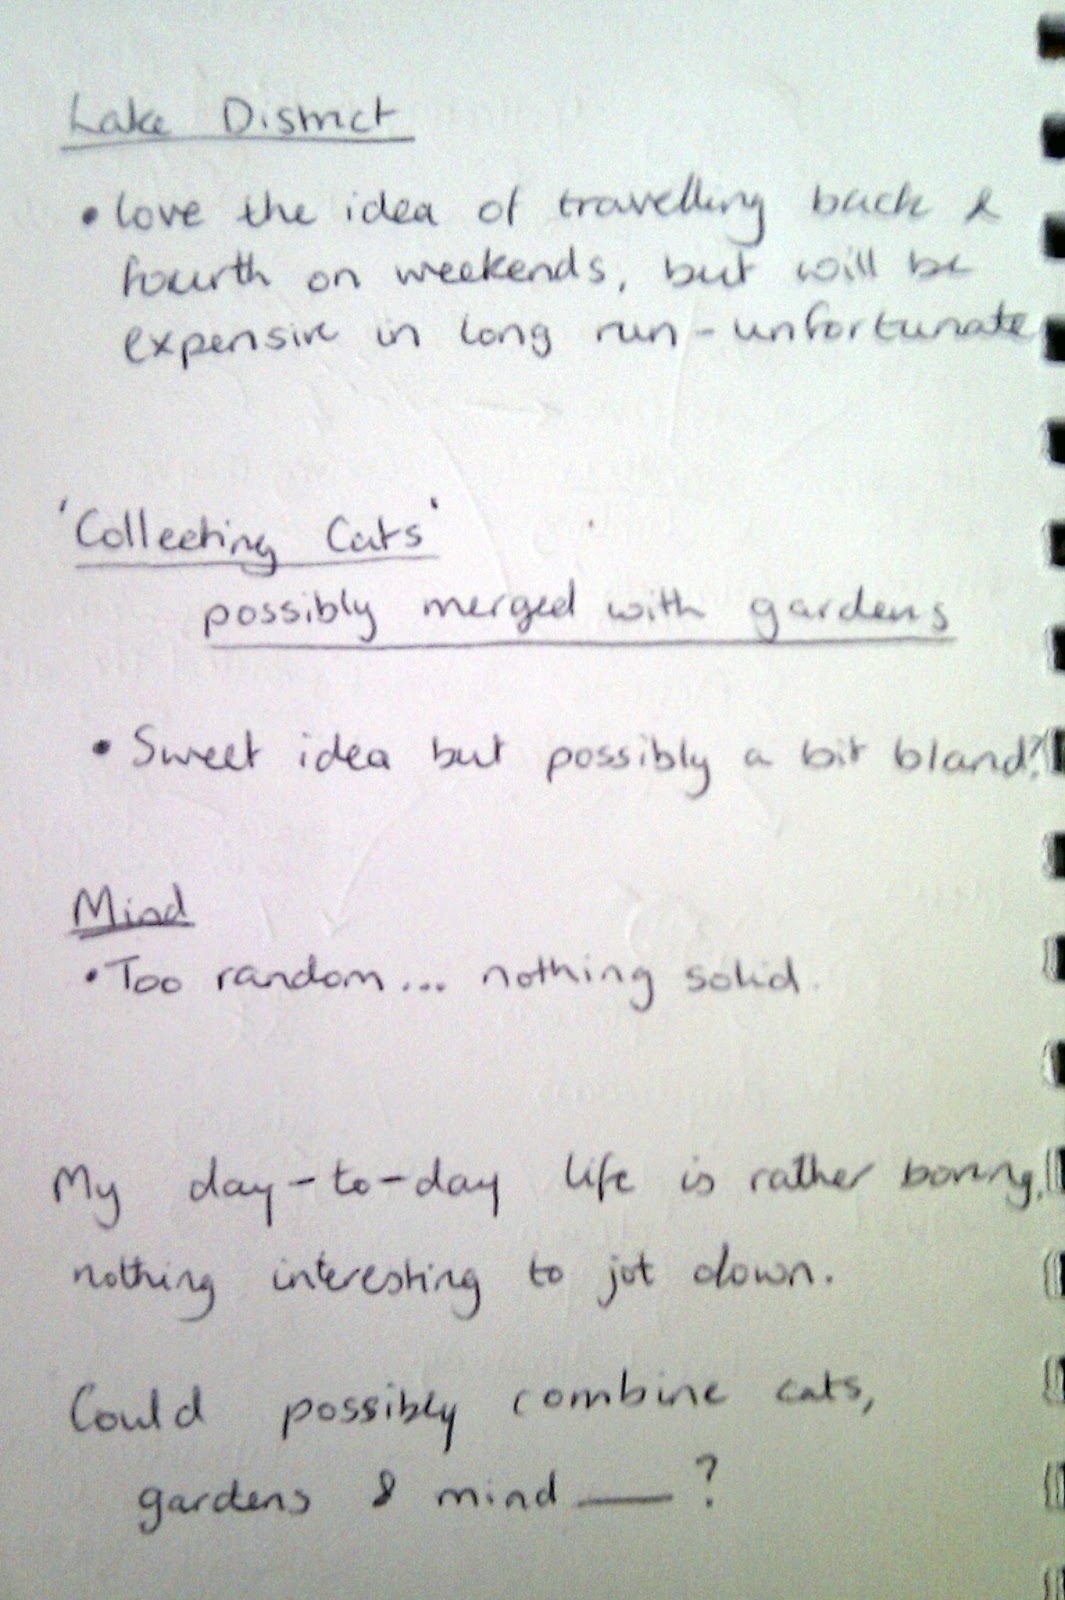 Lake District
• Love the idea of travelling back &
fourth on weekends, but will be
expensive in long run - unfortunate
'Collecting Cats'
possibly merged with gardens
• Sweet idea but possibly a bit bland?
Mind
• Too random... nothing solid.
My day-to-day life is rather boring,
nothing interesting to jot down.
Could possibly combine cats,
gardens & mind — ?